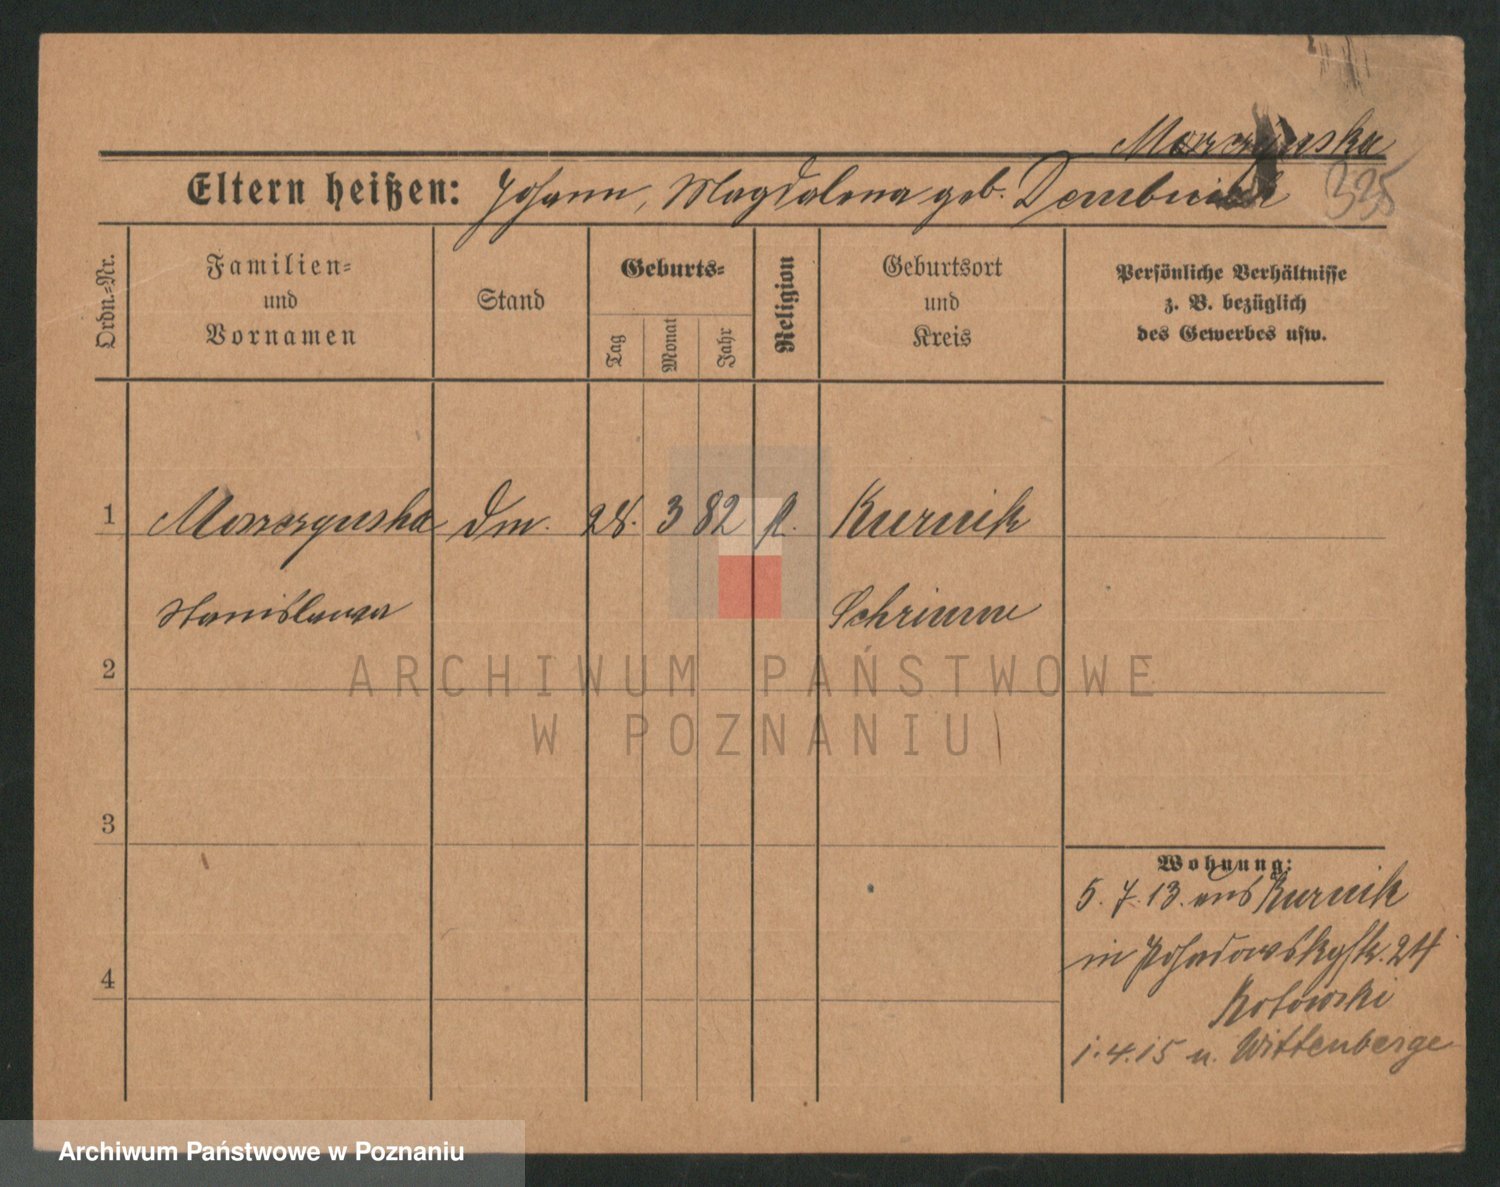 Morczynska
Eltern heißen: Johann, Magdalena geb. 335
Ordn.-Nr.
Familien-
und
Vornamen
Stand
Geburts-
Tag
Monat
Jahr
Religion
Geburtsort
und
Kreis
Persönliche Verhältnisse
z. B. bezüglich
des Gewerbes usw.
1 Morczynska 28. 3 82 Kurnik
Stanislawa Schrimm
2
3
4
Wohnung:
5. 7. 13. aus Kurnik
in 24
Kotowski
1. 4. 15 n. Wittenberge
ARCHIWUM PAŃSTWOWE
W POZNANIU
Archiwum Państwowe w Poznaniu